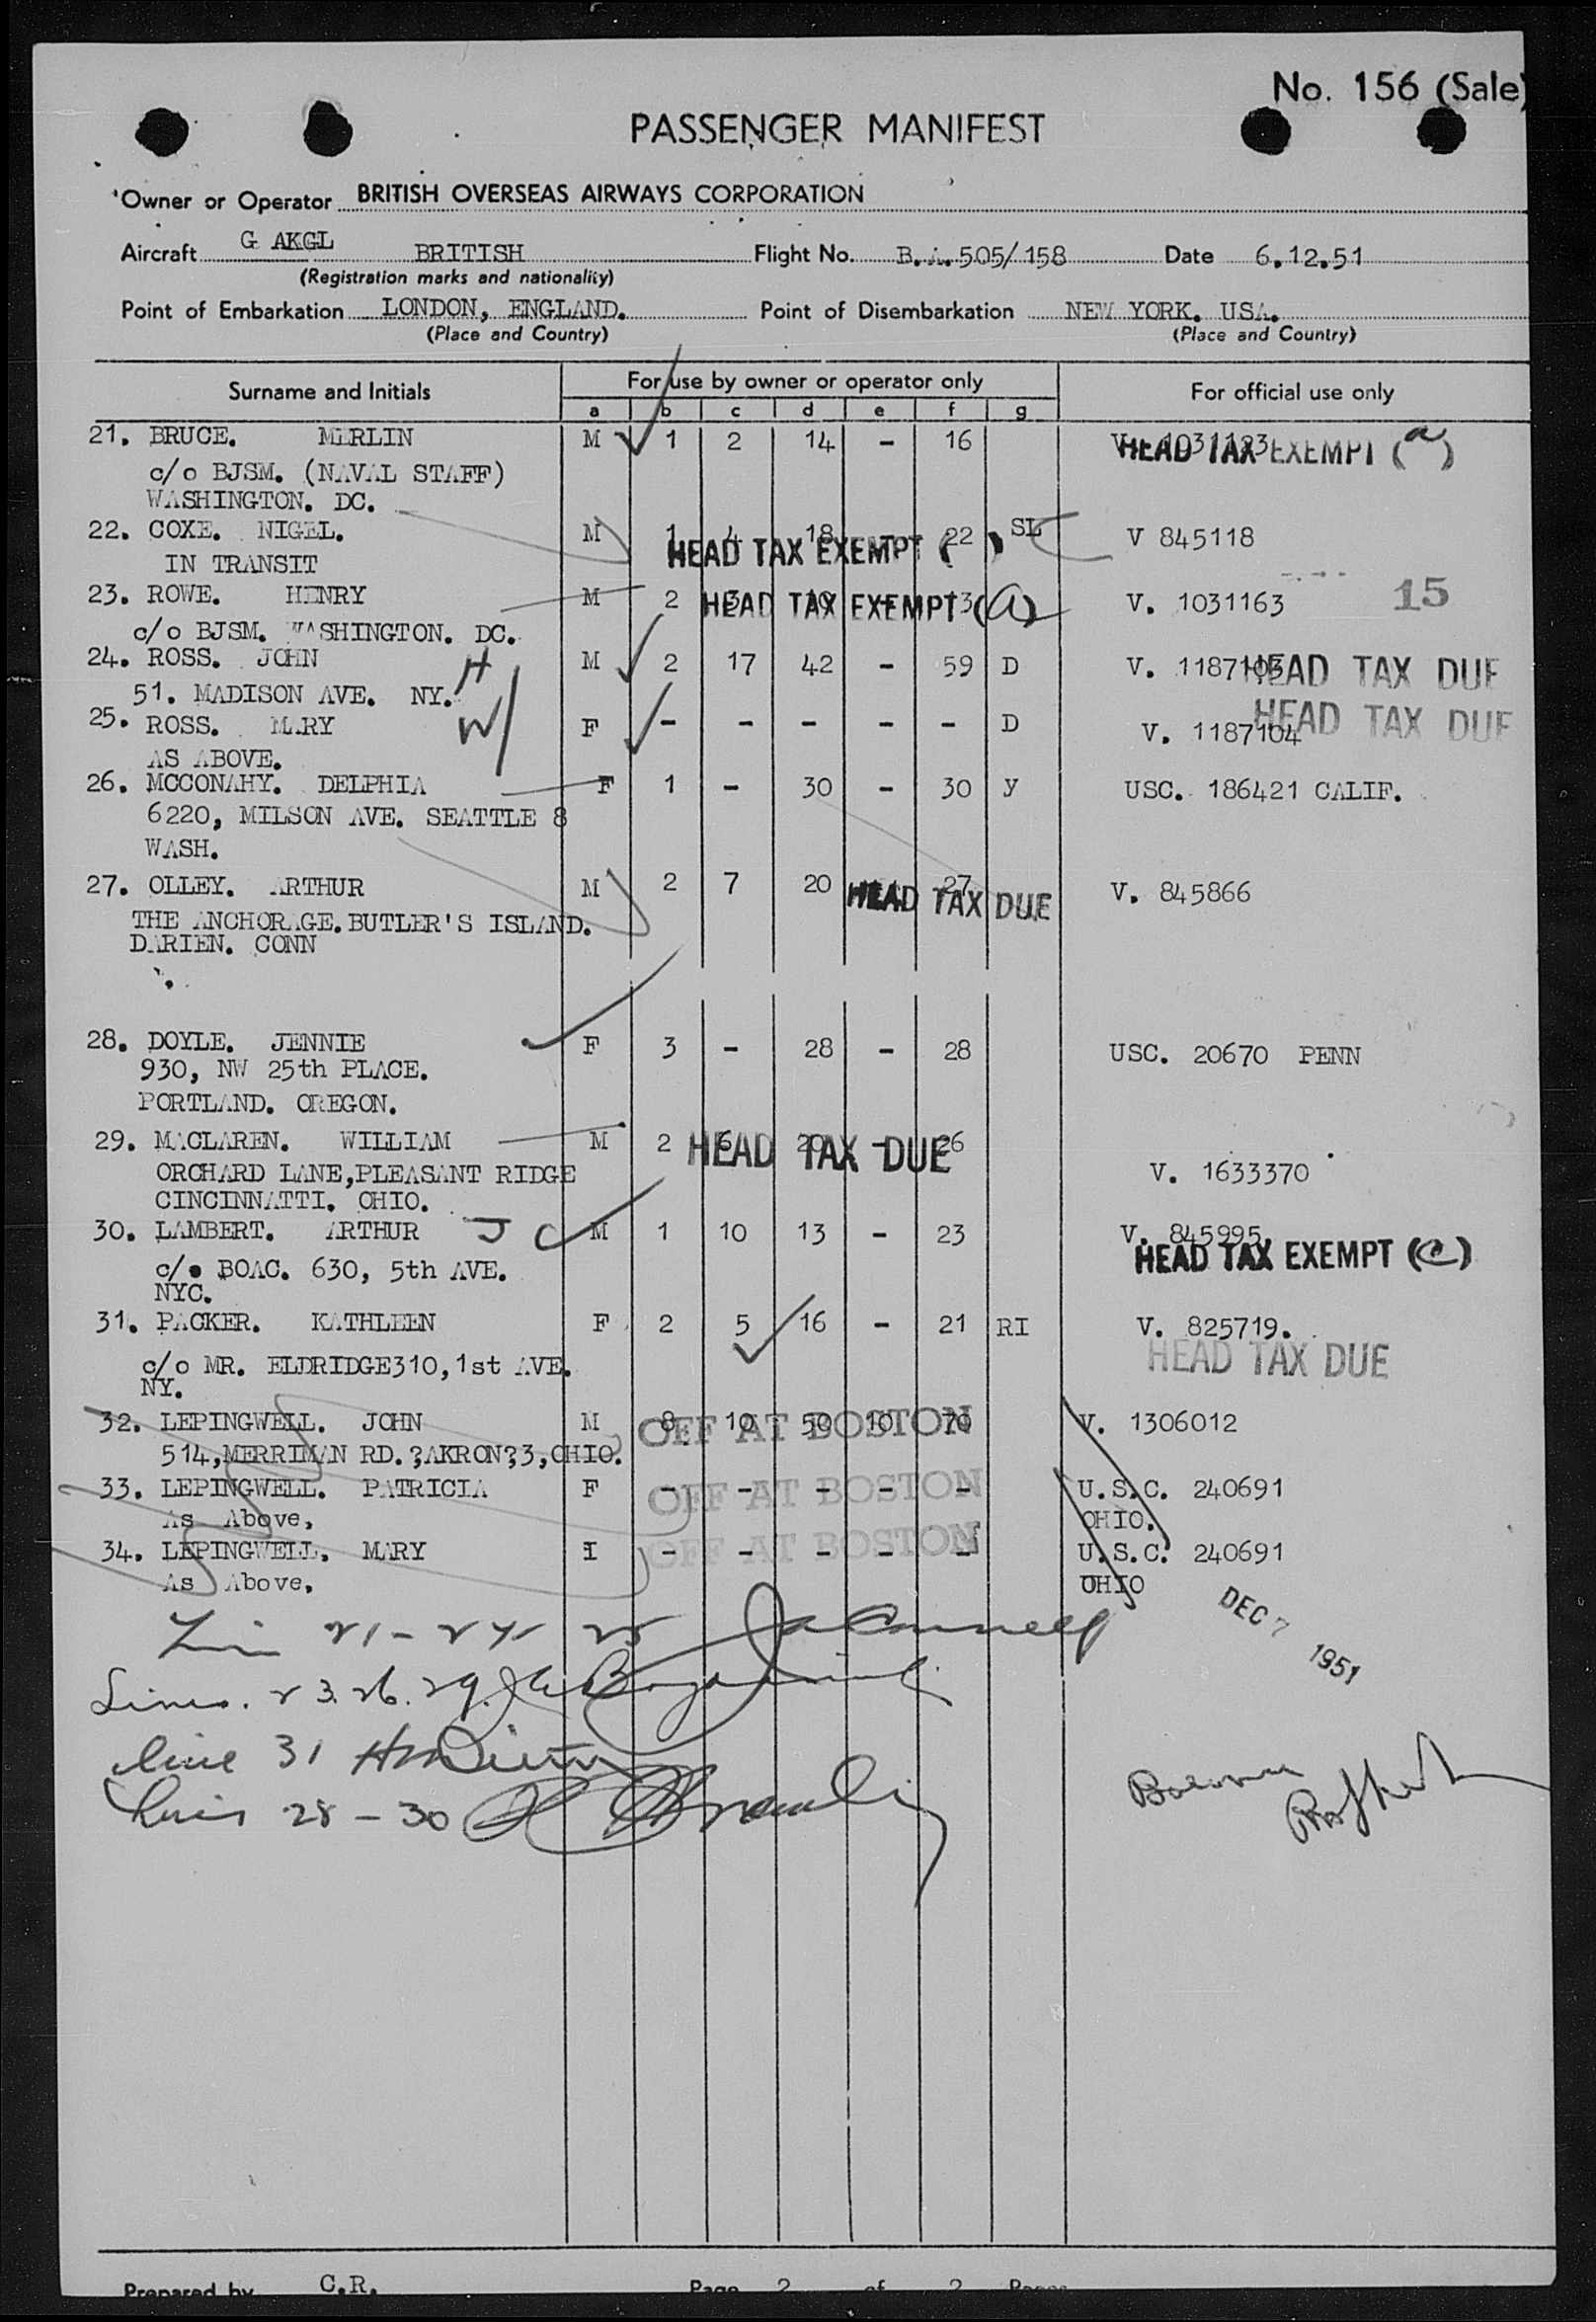 No. 156 (Sale)
PASSENGER MANIFEST
Owner or Operator BRITISH OVERSEAS AIRWAYS CORPORATION
Aircraft G AKGL BRITISH Flight No. B.A.505/158 Date 6.12.51
(Registration marks and nationality)
Point of Embarkation LONDON, ENGLAND. Point of Disembarkation NEW YORK. USA.
(Place and Country) (Place and Country)
Surname and Initials For use by owner or operator only For official use only
a b c d e f g
21. BRUCE. MERLIN M 1 2 14 - 16 HEAD TAX EXEMPT (a)
c/o BJSM. (NAVAL STAFF)
WASHINGTON. DC.
22. COXE. NIGEL. M 1 4 18 - 22 SL V 845118
IN TRANSIT HEAD TAX EXEMPT ( )
23. ROWE. HENRY M 2 HEAD TAX EXEMPT (a) V. 1031163 15
c/o BJSM. WASHINGTON. DC.
24. ROSS. JOHN H M 2 17 42 - 59 D V. 1187103 HEAD TAX DUE
51. MADISON AVE. NY.
25. ROSS. MARY W F - - - - - D V. 1187104 HEAD TAX DUE
AS ABOVE.
26. MCCONAHY. DELPHIA F 1 - 30 - 30 Y USC. 186421 CALIF.
6220, MILSON AVE. SEATTLE 8
WASH.
27. OLLEY. ARTHUR M 2 7 20 - 27 V. 845866
HEAD TAX DUE
THE ANCHORAGE. BUTLER'S ISLAND.
DARIEN. CONN
28. DOYLE. JENNIE F 3 - 28 - 28 USC. 20670 PENN
930, NW 25th PLACE.
PORTLAND. OREGON.
29. MACLAREN. WILLIAM M 2 6 20 - 26 HEAD TAX DUE
ORCHARD LANE,PLEASANT RIDGE V. 1633370
CINCINNATTI. OHIO.
30. LAMBERT. ARTHUR J C M 1 10 13 - 23 V. 845995.
HEAD TAX EXEMPT (C)
c/o BOAC. 630, 5th AVE.
NYC.
31. PACKER. KATHLEEN F 2 5 16 - 21 RI V. 825719.
HEAD TAX DUE
c/o MR. ELDRIDGE310,1st AVE.
NY.
32. LEPINGWELL. JOHN M 8 10 50 10 70 OFF AT BOSTON V. 1306012
514,MERRIMAN RD.?AKRON?3,OHIO.
33. LEPINGWELL. PATRICIA F - - - - - OFF AT BOSTON U.S.C. 240691
As Above, OHIO.
34. LEPINGWELL. MARY I - - - - - OFF AT BOSTON U.S.C. 240691
As Above, OHIO
DEC 7 1951
Lines. 23. 26. 29.
line 31
Lines 28 - 30
Prepared by C.R. Page 2 of 2 Pages